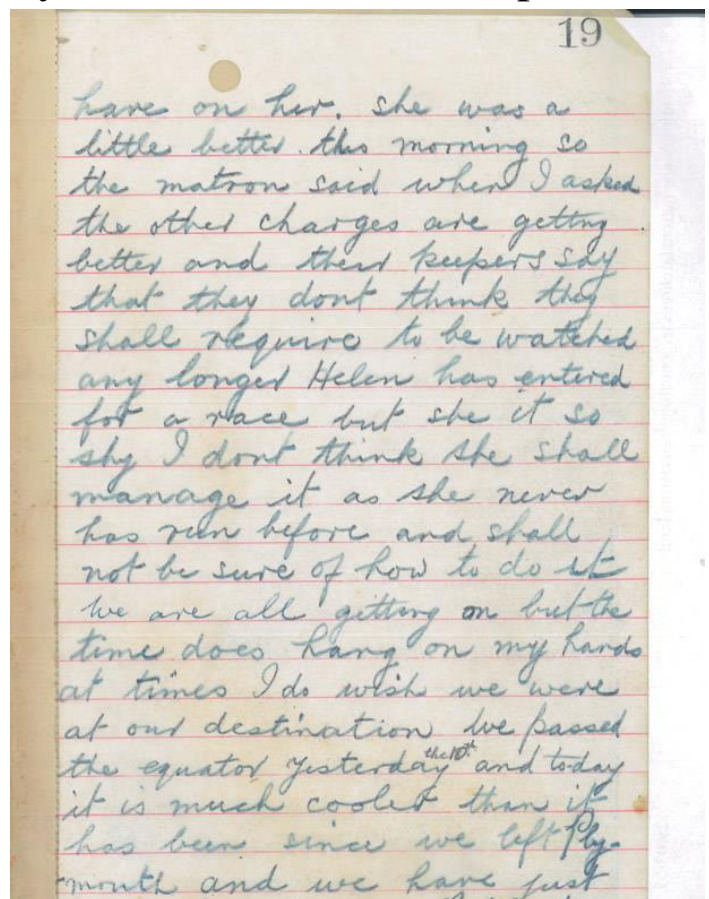 19
have on her. she was a
little better this morning so
the matron said when I asked
the other charges are getting
better and their keepers say
that they dont think they
shall require to be watched
any longer Helen has entered
for a race but she it so
shy I dont think she shall
manage it as she never
has run before and shall
not be sure of how to do it
We are all getting on but the
time does hang on my hands
at times I do wish we were
at our destination We passed
the equator yesterday the 10th and to-day
it is much cooler than it
has been since we left Ply-
mouth and we have just